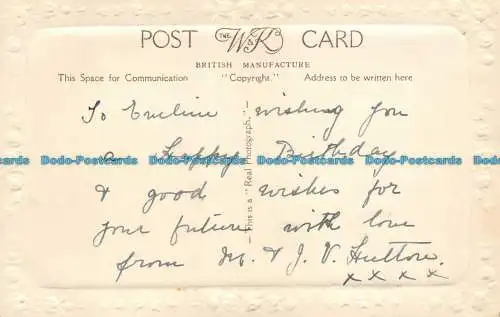 POST THE W&K CARD
BRITISH MANUFACTURE
This Space for Communication "Copyright." Address to be written here
To Eveline wishing you
a Happy Birthday
& good wishes for
your future with love
from M. & J. V. Hutton.
x x x x
This is a "Real Photograph."
Dodo-Postcards Dodo-Postcards Dodo-Postcards Dodo-Postcards
Dodo-Postcards Dodo-Postcards Dodo-Postcards Dodo-Postcards